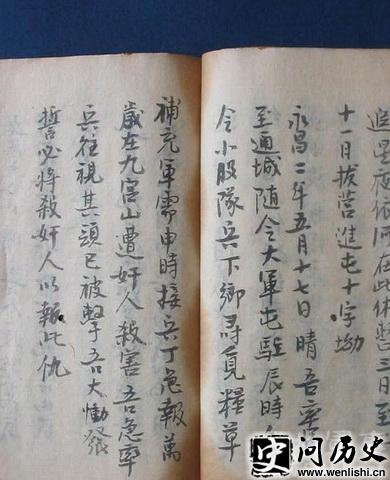 在此休三日至
十一日拔營進屯十字坳
永昌二年五月十七日晴吾軍
至通城随令大軍屯駐辰時
令小股隊兵下鄉尋覓糧草
補充軍需申時接兵丁急報萬
歲在九宮山遭奸人殺害吾急率
兵往視其頭已被擊吾大慟發
誓必將殺奸人以報此仇
史问历史
www.wenlishi.cn